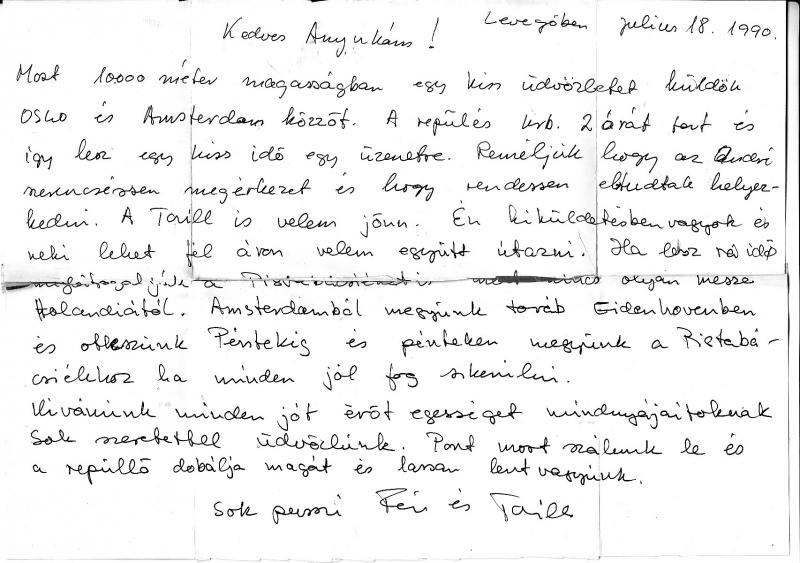 Levegőben július 18. 1990.
Kedves Anyukám!
Most 10.000 méter magasságban egy kiss üdvözletet küldök
Oslo és Amsterdam közzöt. A repülés krb. 2 órát tart és
így lesz egy kiss idő egy üzenetre. Reméljük hogy az Andri
serencséssen megérkezet és hogy rendessen eltudtak helyez-
kedni. A Taill is velem jönn. Én kiküldetésben vagyok és
neki lehet fél áron velem együtt útazni. Ha lesz rá idő
a Pistabácsiékat is mert nincs olyan messe
Holandiától. Amsterdamból megyünk továb Eidenhovenben
és otleszünk Péntekig és pénteken megyünk a Pistabá-
csiékhoz ha minden jól fog sikerülni.
Kivánunk minden jót erőt egességet mindnyájaitoknak
Sok szeretettel üdvözlünk. Pont most szálunk le és
a repüllő dobálja magát és lassan lent vagyunk.
Sok puszi Feri és Taill